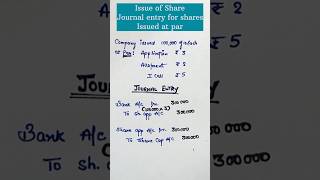 Issue of Share
Journal entry for shares
Issued at par
Company issued 100,000 of which
@ Par: Application ₹ 3
Allotment ₹ 2
I Call ₹ 5
₹ 2
₹ 5
JOURNAL ENTRY
Bank A/c Dr. 300000
(100000 x 3)
To sh. app A/c 300000
Share app A/c Dr. 300000
To Share Cap A/c 300000
Bank A/c
To Sh.
300000